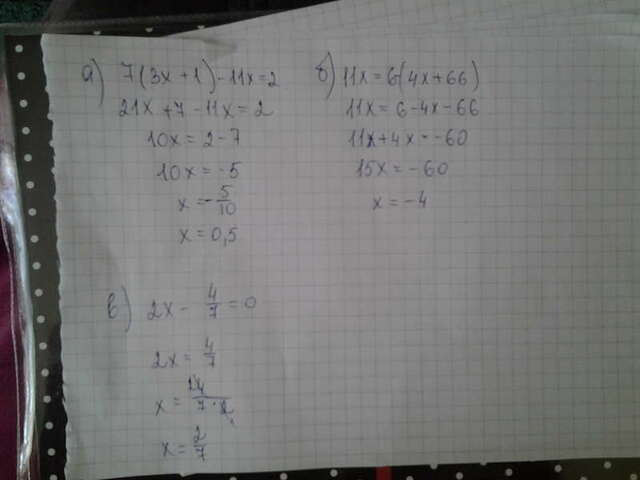 а) 7(3x+1)-11x=2
21x+7-11x=2
10x=2-7
10x=-5
x=-5/10
x=0,5
б) 11x=6(4x+66)
11x=6-4x-66
11x+4x=-60
15x=-60
x=-4
в) 2x-4/7=0
2x=4/7
x=4/7·2
x=2/7